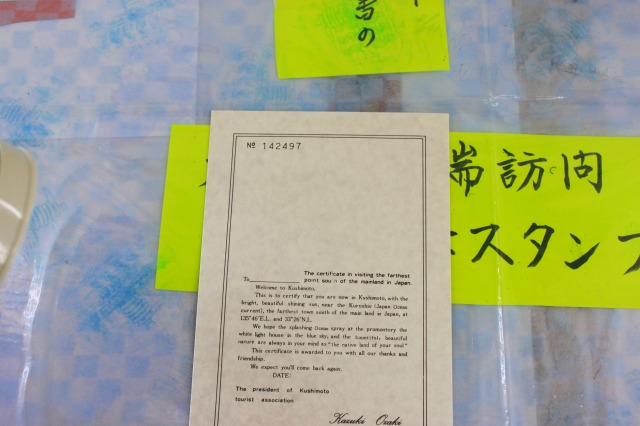 書の
端訪問
スタンプ
№ 142497
The certificate in visiting the farthest
To point south of the mainland in Japan.
Welcome to Kushimoto.
This is to certify that you are now in Kyshimoto, with the
bright, beautiful shining sun, near the Kuroshio (Japan Ocean
current), the farthest town south of the main land in Japan, at
135°46'E.L. and 33°26'N.L.
We hope the splashing Ocean spray at the promontory the
white light house in the blue sky, and the bountiful, beautiful
nature are always in your mind as "the native land of your soul"
This certificate is awarded to you with all our thanks and
friendship.
We expect you'll come back again.
DATE:
The president of Kushimoto
tourist association
Kazuki Ozaki